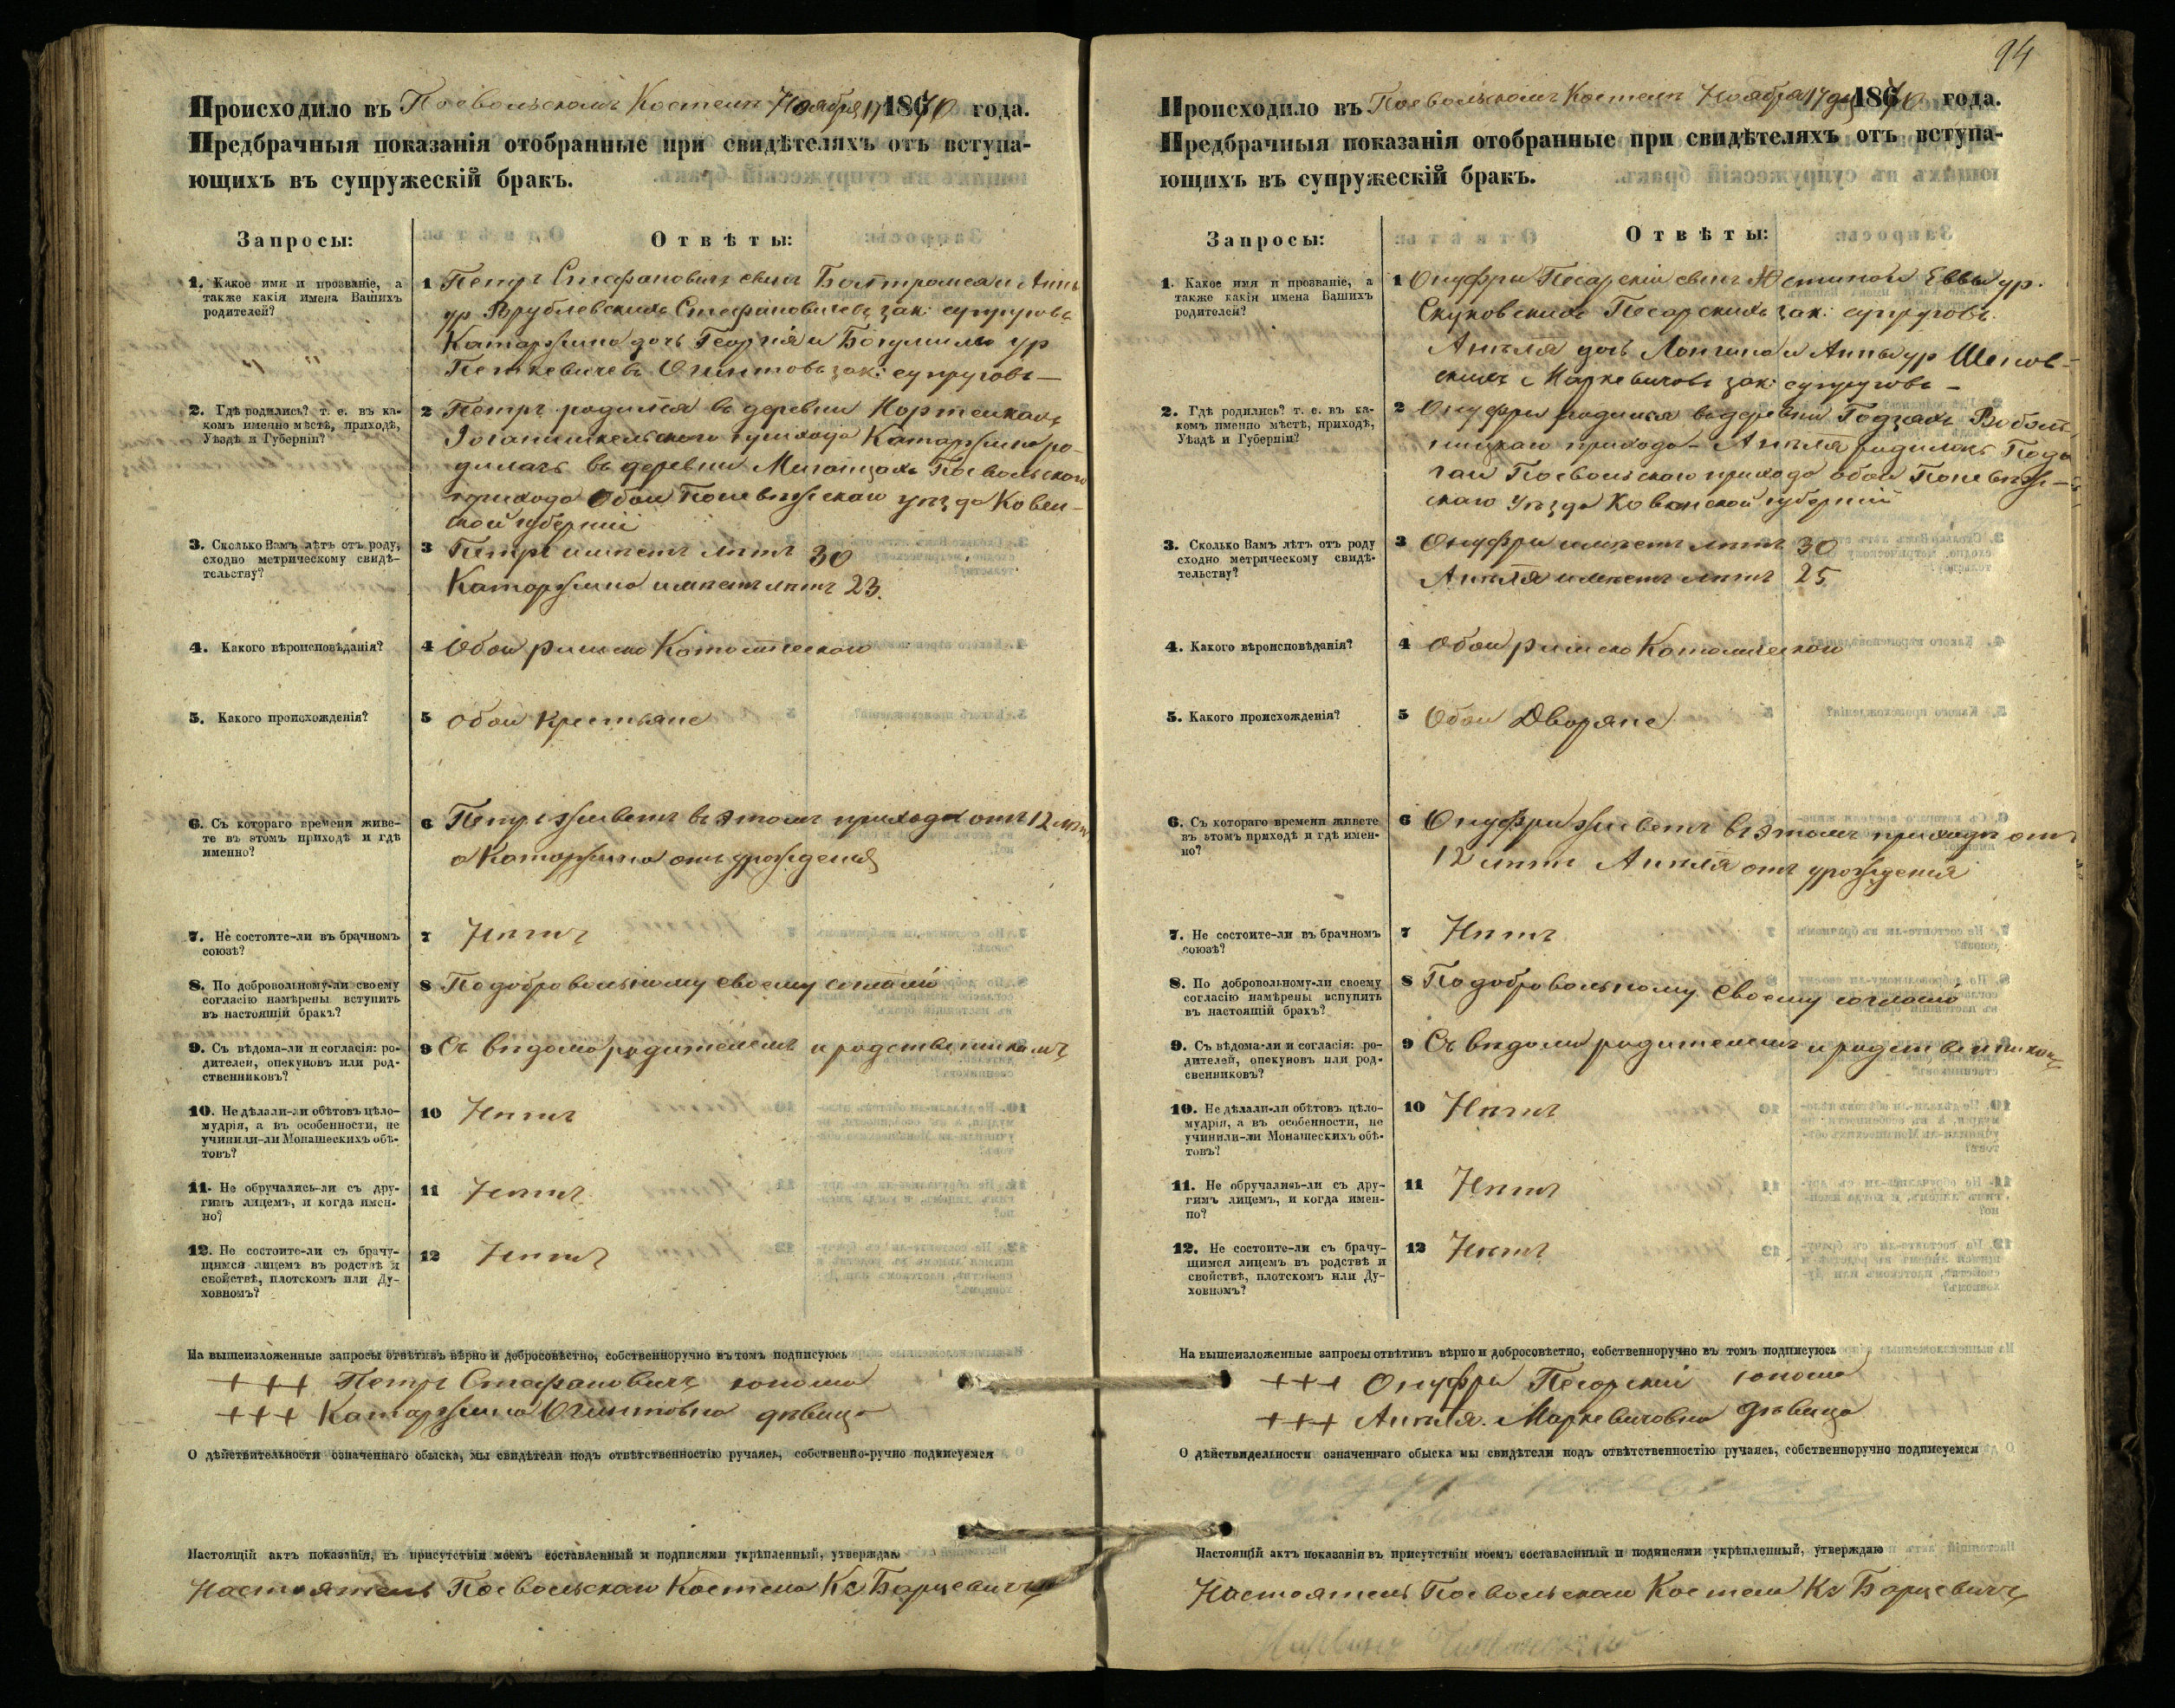 Происходило въ Поевольскомъ Костелѣ Ноября 17 1870 года.
Предбрачныя показанія отобранные при свидѣтеляхъ отъ вступа-
ющихъ въ супружескій бракъ.
Запросы:
Отвѣты:
1. Какое имя и прозваніе, а
также какія имена Вашихъ
родителей?
1 Петръ Стефановичъ сынъ Балтромея и Анны
ур Врублевскихъ Стефановичевъ зак: супруговъ
Катаржина дочь Георгія и Богумилы ур
Петкевичевъ Огинтовъ зак: супруговъ —
2. Гдѣ родились? т. е. въ ка-
комъ именно мѣстѣ, приходѣ,
Уѣздѣ и Губерніи?
2 Петръ родился въ деревни
Іоганишкельскаго прихода Катаржина ро-
дилась въ деревни Поевольскаго
прихода Обои Поневѣжскаго уѣзда Ковен-
ской губерніи
3. Сколько Вамъ лѣтъ отъ роду,
сходно метрическому свидѣ-
тельству?
3 Петръ имѣетъ лѣтъ 30
Катаржина имѣетъ лѣтъ 23.
4. Какого вѣроисповѣданія?
4 Обои римско Католическаго
5. Какого происхожденія?
5 Обои Крестьяне
6. Съ котораго времени живе-
те въ этомъ приходѣ и гдѣ
именно?
6 Петръ живетъ въ этомъ приходѣ отъ 12 лѣтъ
а Катаржина отъ урожденія
7. Не состоите-ли въ брачномъ
союзѣ?
7 Нѣтъ
8. По добровольному-ли своему
согласію намѣрены вступить
въ настоящій бракъ?
8 По добровольному своему согласію
9. Съ вѣдома-ли и согласія: ро-
дителей, опекуновъ или род-
ственниковъ?
9 Съ вѣдома родителемъ и родственникамъ
10. Не дѣлали-ли обѣтовъ цѣло-
мудрія, а въ особенности, не
учинили-ли Монашескихъ обѣ-
товъ?
10 Нѣтъ
11. Не обручались-ли съ дру-
гимъ лицемъ, и когда имен-
но?
11 Нѣтъ
12. Не состоите-ли съ брачу-
щимся лицемъ въ родствѣ и
свойствѣ, плотскомъ или Ду-
ховномъ?
12 Нѣтъ
На вышеизложенные запросы отвѣтивъ вѣрно и добросовѣстно, собственноручно въ томъ подписуюсь
+++ Петръ Стефановичъ юноша
+++ Катаржина Огинтовна дѣвица
О дѣйствительности означеннаго обыска, мы свидѣтели подъ отвѣтственностію ручаясь, собственно-ручно подписуемся
Настоящій актъ показанія, въ присутствіи моемъ составленный и подписями укрѣпленный, утверждаю
Настоятель Поевольскаго Костела Кс Барцевичъ
94
Происходило въ Поевольскомъ Костелѣ Ноября 17 дня 1870 года.
Предбрачныя показанія отобранные при свидѣтеляхъ отъ вступа-
ющихъ въ супружескій бракъ.
Запросы:
Отвѣты:
1. Какое имя и прозваніе, а
также какія имена Вашихъ
родителей?
1 Онуфри Песарскій сынъ Юстина и Еввы ур.
Скуковскихъ Песарскихъ зак: супруговъ.
Анѣля дочь Лонгина и Анны ур
Маркевичовъ зак: супруговъ —
2. Гдѣ родились? т. е. въ ка-
комъ именно мѣстѣ, приходѣ,
Уѣздѣ и Губерніи?
2 Онуфри родился въ деревни
прихода — Анѣля родилась
Поевольскаго прихода обои Поневѣж-
скаго Уѣзда Ковенской губерніи
3. Сколько Вамъ лѣтъ отъ роду
сходно метрическому свидѣ-
тельству?
3 Онуфри имѣетъ лѣтъ 30
Анѣля имѣетъ лѣтъ 25
4. Какого вѣроисповѣданія?
4 Обои римско Католическаго
5. Какого происхожденія?
5 Обои Дворяне
6. Съ котораго времени живете
въ этомъ приходѣ и гдѣ имен-
но?
6 Онуфри живетъ въ этомъ приходѣ отъ
12 лѣтъ Анѣля отъ урожденія
7. Не состоите-ли въ брачномъ
союзѣ?
7 Нѣтъ
8. По добровольному-ли своему
согласію намѣрены вспупить
въ настоящій бракъ?
8 По добровольному своему согласію
9. Съ вѣдома-ли и согласія: ро-
дителей, опекуновъ или род-
свенниковъ?
9 Съ вѣдома родителемъ и родственникамъ
10. Не дѣлали-ли обѣтовъ цѣло-
мудрія, а въ особенности, не
учинили-ли Монашескихъ обѣ-
товъ?
10 Нѣтъ
11. Не обручались-ли съ дру-
гимъ лицемъ, и когда имен-
но?
11 Нѣтъ
12. Не состоите-ли съ брачу-
щимся лицемъ въ родствѣ и
свойствѣ, плотскомъ или Ду-
ховномъ?
12 Нѣтъ
На вышеизложенные запросы отвѣтивъ вѣрно и добросовѣстно, собственноручно въ томъ подписуюсь
+++ Онуфри Песарскій юноша
+++ Анѣля Маркевичовна дѣвица
О дѣйствидельности означеннаго обыска мы свидѣтели подъ отвѣтственностію ручаясь, собственноручно подписуемся
Настоящій актъ показанія въ присутствіи моемъ составленный и подписями укрѣпленный, утверждаю
Настоятель Поевольскаго Костела Кс Барцевичъ